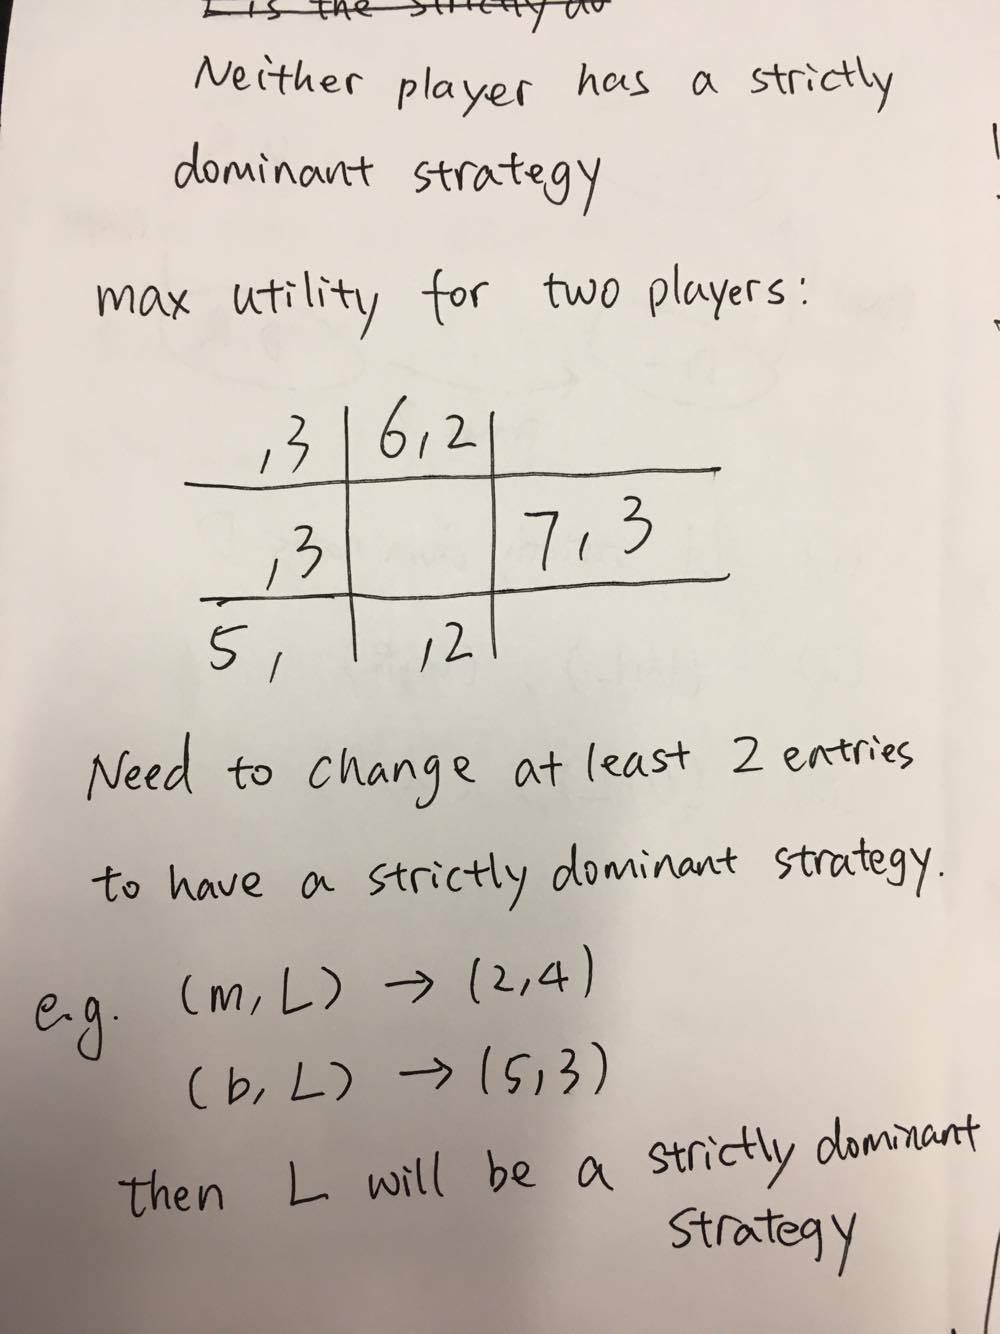 L is the strictly do
Neither player has a strictly
dominant strategy
max utility for two players:
,3 | 6,2 |
,3 | | 7,3
5, | ,2 |
Need to change at least 2 entries
to have a strictly dominant strategy.
e.g. (m, L) → (2,4)
(b, L) → (5,3)
then L will be a strictly dominant
strategy